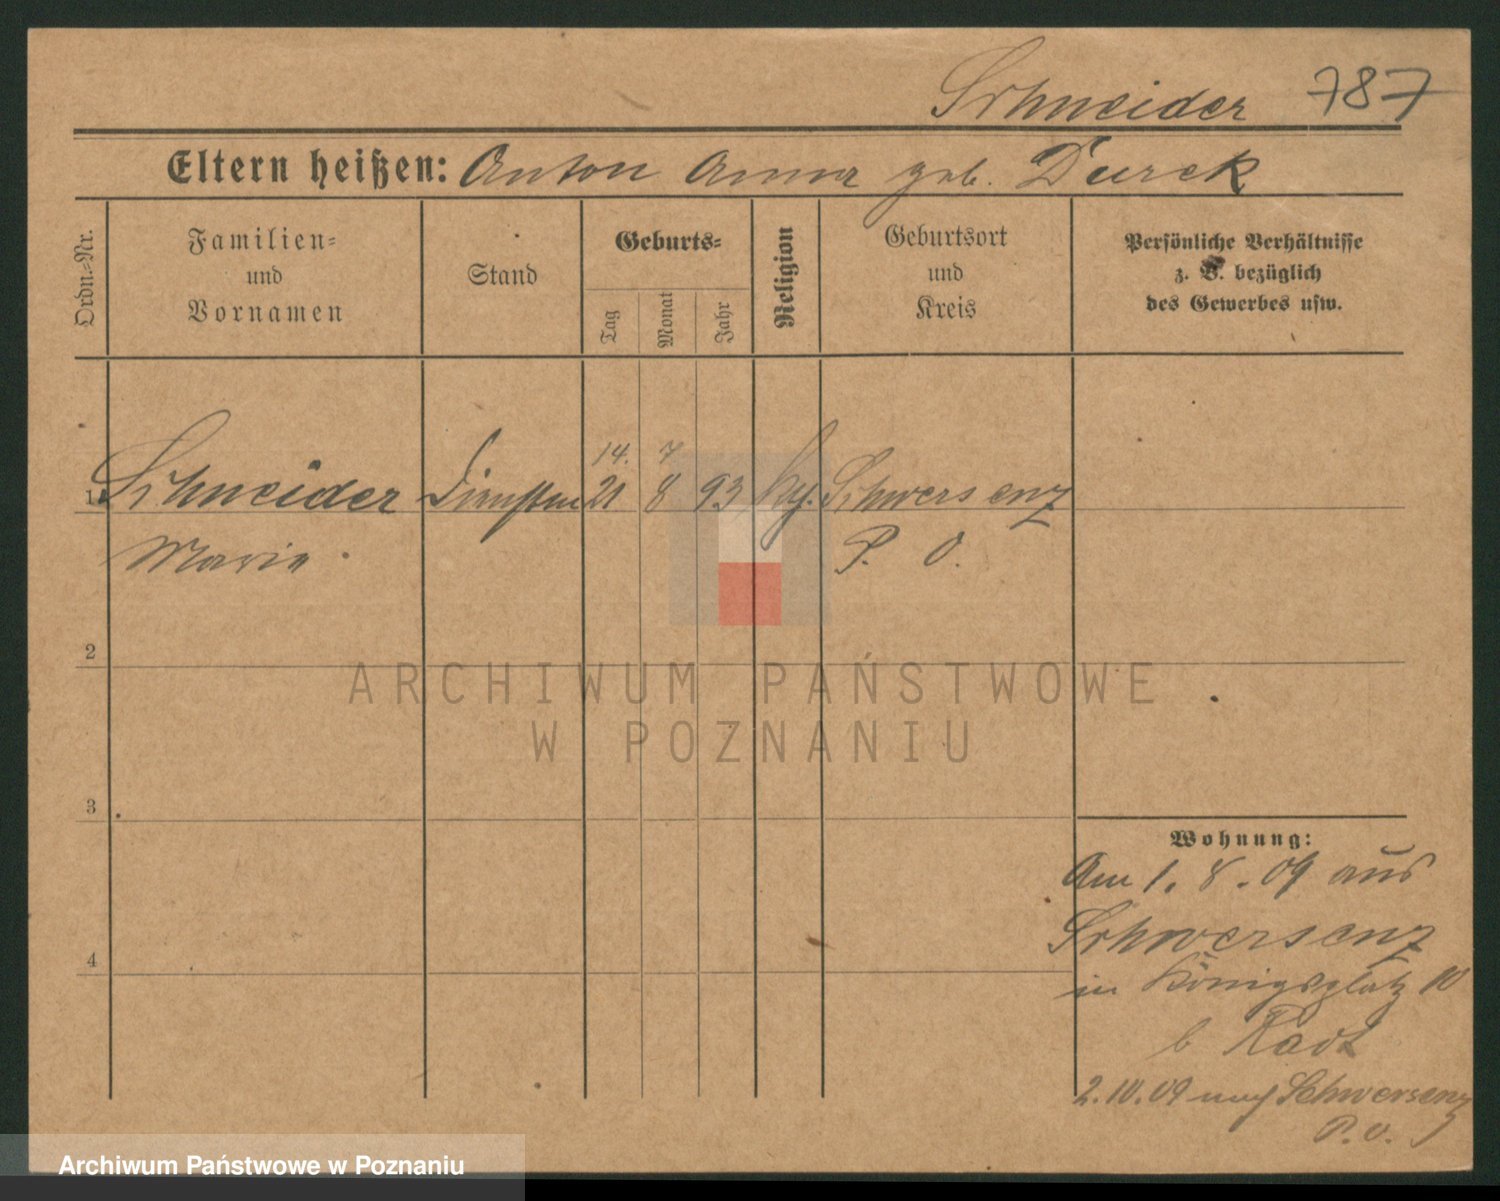 Schneider 787
Eltern heißen: Anton Anna geb. Durek
Ordn.-Nr.
Familien-
und
Vornamen
Stand
Geburts-
Tag
Monat
Jahr
Religion
Geburtsort
und
Kreis
Persönliche Verhältnisse
z. B. bezüglich
des Gewerbes usw.
14. 7
1 Schneider 21 8 93 Schwersenz
Maria P. O.
2
ARCHIWUM PAŃSTWOWE
W POZNANIU
3
Wohnung:
Am 1. 8. 09 aus
Schwersenz
4
in Königsplatz 10
b
2.10.09 nach Schwersenz
P. O.
Archiwum Państwowe w Poznaniu